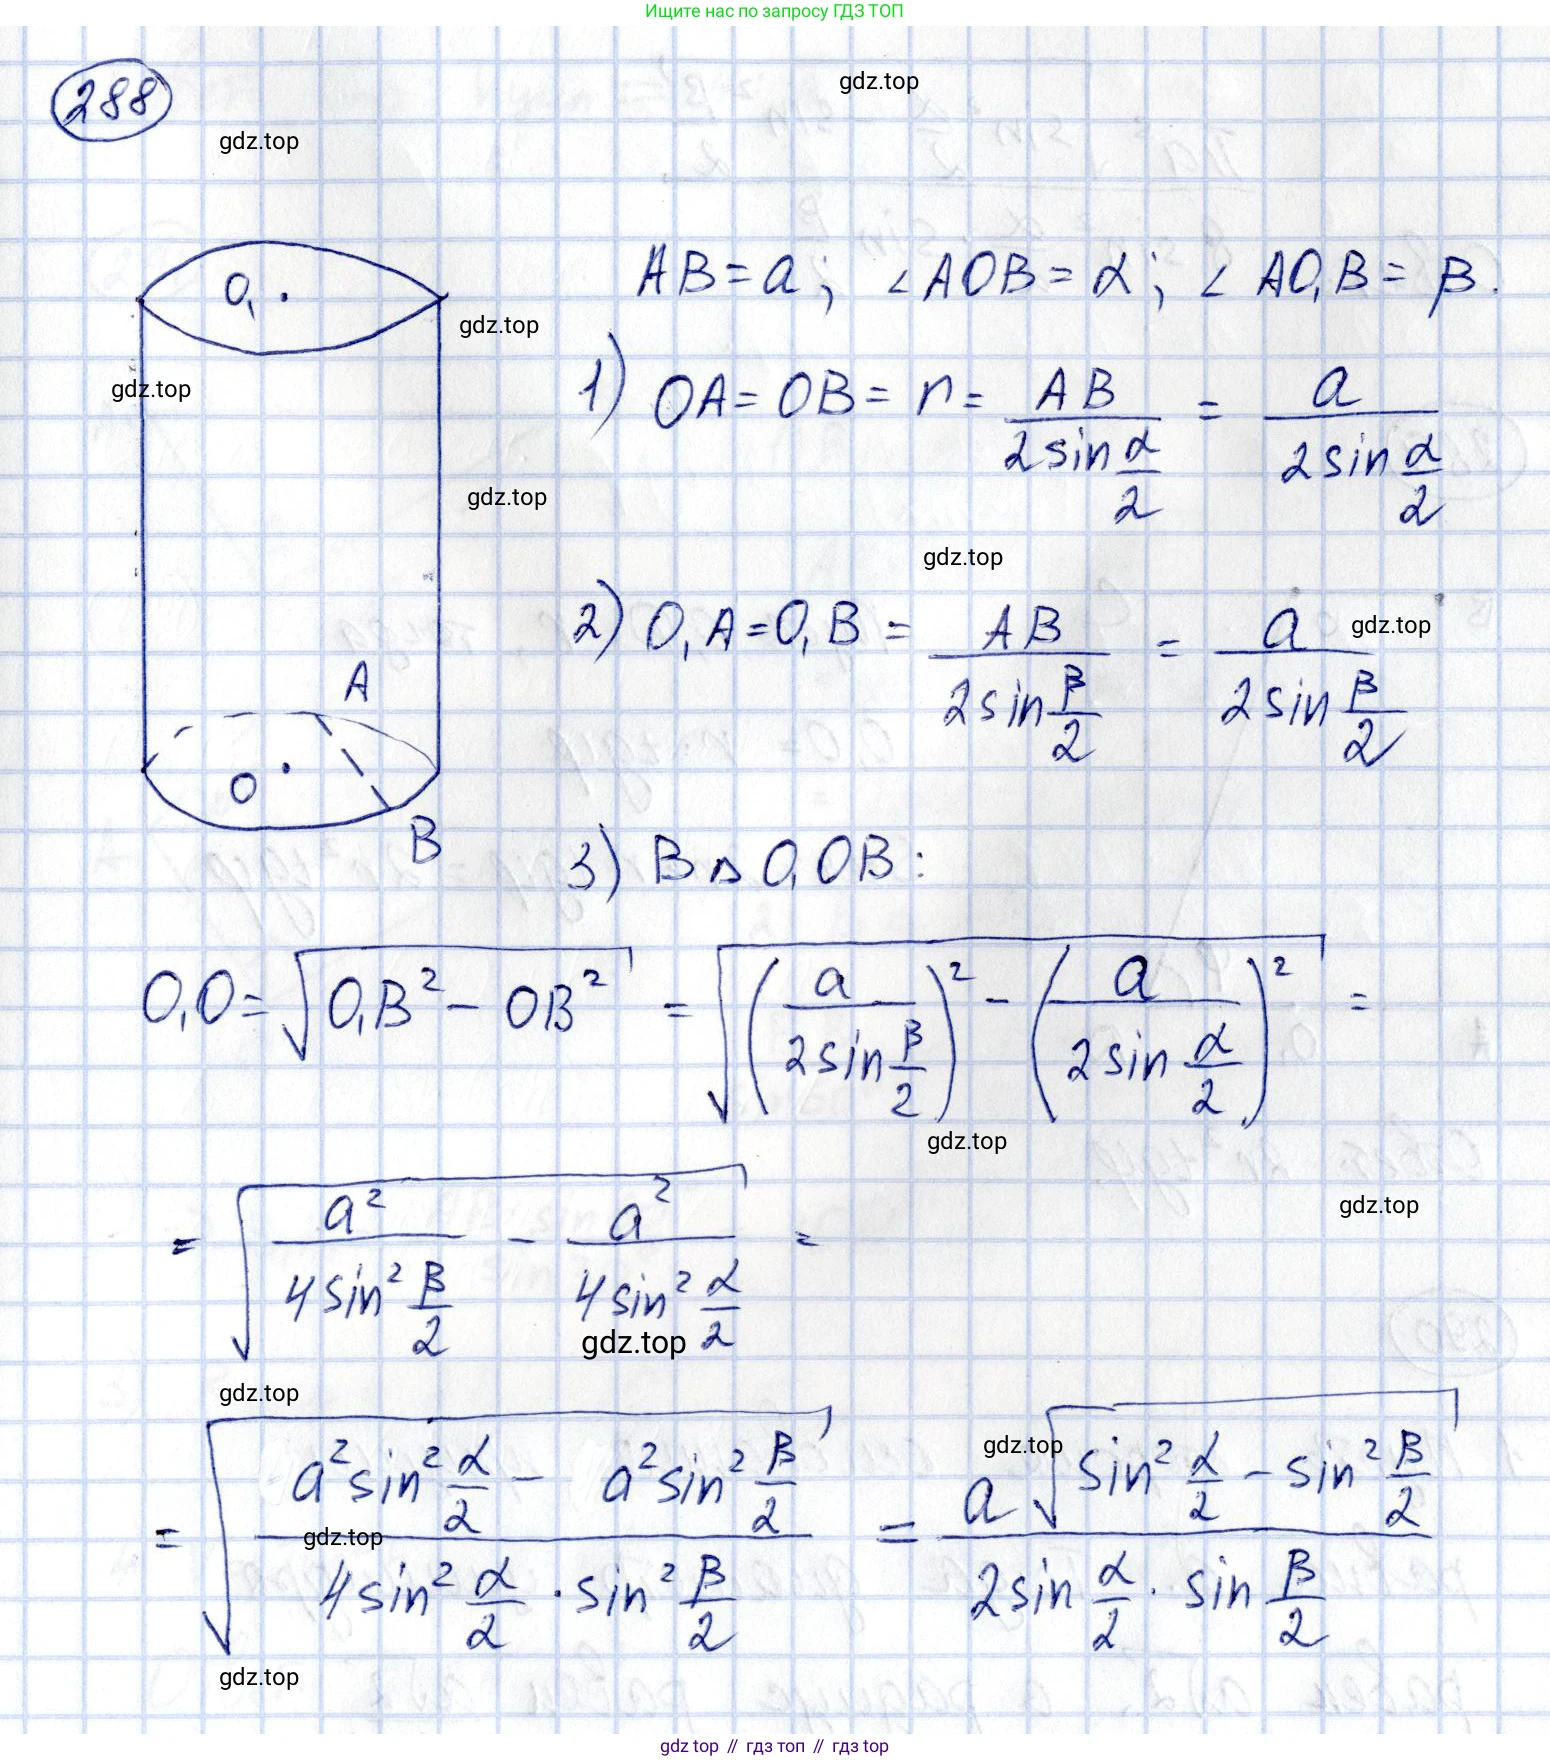 Ищите нас по запросу ГДЗ ТОП
288
gdz.top
gdz.top
O₁
AB = a; ∠AOB = α; ∠AO₁B = β.
gdz.top
gdz.top
1) OA = OB = r = AB / (2 sin α/2) = a / (2 sin α/2)
gdz.top
gdz.top
2) O₁A = O₁B = AB / (2 sin β/2) = a / (2 sin β/2)
gdz.top
A
O
B
3) В △ O₁OB:
O₁O = √(O₁B² − OB²) = √((a / (2 sin β/2))² − (a / (2 sin α/2))²) =
gdz.top
= √(a² / (4 sin² β/2) − a² / (4 sin² α/2)) =
gdz.top
gdz.top
gdz.top
gdz.top
= √((a² sin² α/2 − a² sin² β/2) / (4 sin² α/2 · sin² β/2)) = a √(sin² α/2 − sin² β/2) / (2 sin α/2 · sin β/2)
gdz.top
gdz.top
gdz top // гдз топ // гдз top